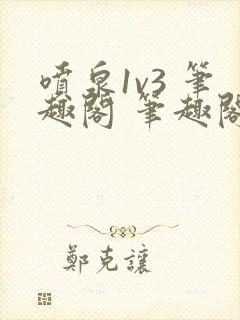 噴泉1v3 筆
趣閣 筆趣閣
鄭克讓